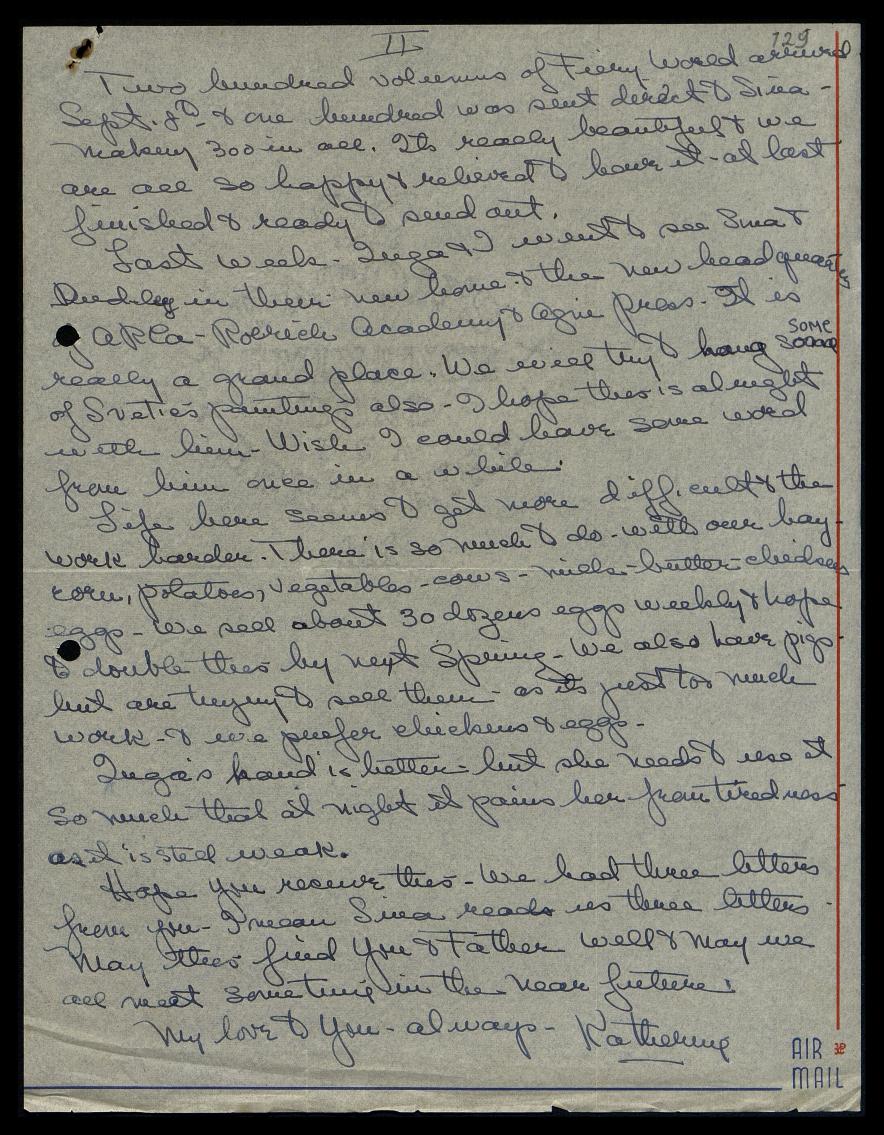 II
129
Two hundred volumns of Fiery World arrived
Sept. 8th & one hundred was sent direct to Sina -
making 300 in all. Its really beautiful & we
are all so happy & relieved to have it - at last
finished & ready to send out.
Last week - Inga & I went to see Sina &
Dudley in their new home & the new headquarters
of ARCA - Roerich Academy & Agni press. It is
really a grand place. We will try to hang some
of Svetie's paintings also - I hope this is alright
with him - Wish I could have some word
from him once in a while.
Life here seems to get more difficult & the
work harder. There is so much to do - with our hay -
corn, potatoes, vegetables - cows - milk - butter - chickens
eggs - We sell about 30 dozens eggs weekly & hope
to double this by next Spring - We also have pigs -
but are trying to sell them - as its just too much
work - & we prefer chickens & eggs -
Inga's hand is better - but she needs to use it
so much that at night it pains her from tiredness
as it is still weak.
Hope you receive this - We had three letters
from you - I mean Sina reads us three letters -
May this find You & Father well & may we
all meet sometime in the near future.
My love to You - always - Katherine
AIR
MAIL